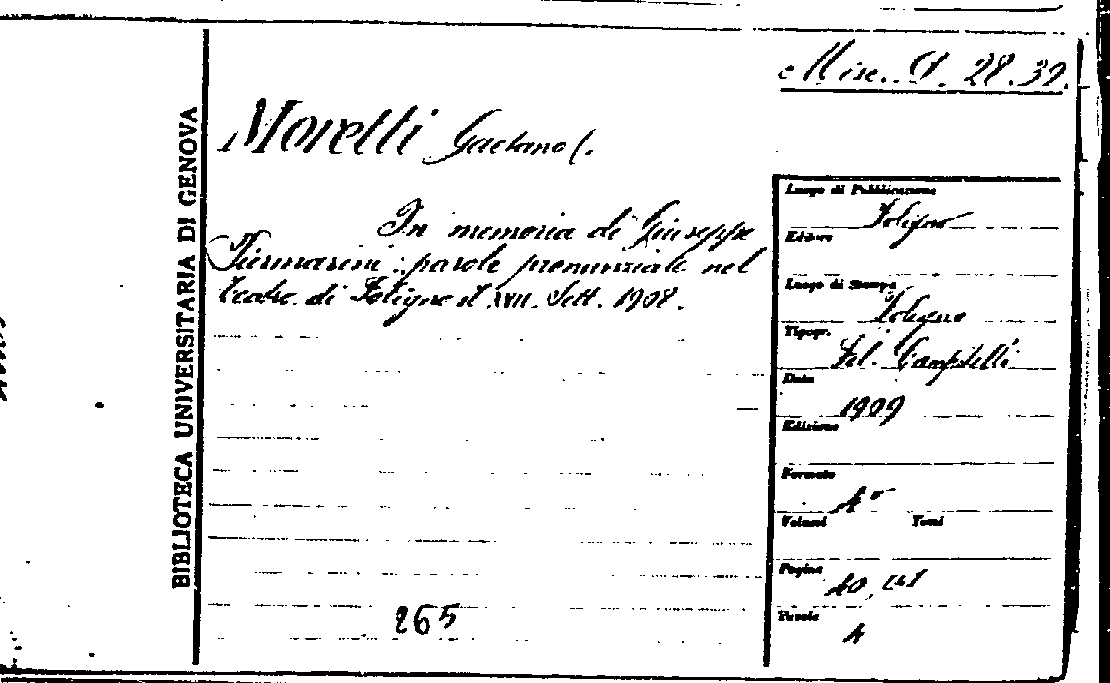 Misc. A. 28.39.
BIBLIOTECA UNIVERSITARIA DI GENOVA
Moretti Gaetano (.
In memoria di Giuseppe
Piermarini : parole pronunziate nel
teatro di Foligno il XVII. Sett. 1908.
Luogo di Pubblicazione
Foligno
Editore
Luogo di Stampa
Foligno
Tipogr.
Fel. Campitelli
Data
1909
Edizione
Formato
4°
Volumi Tomi
Pagine
40,
Tavole
4
265